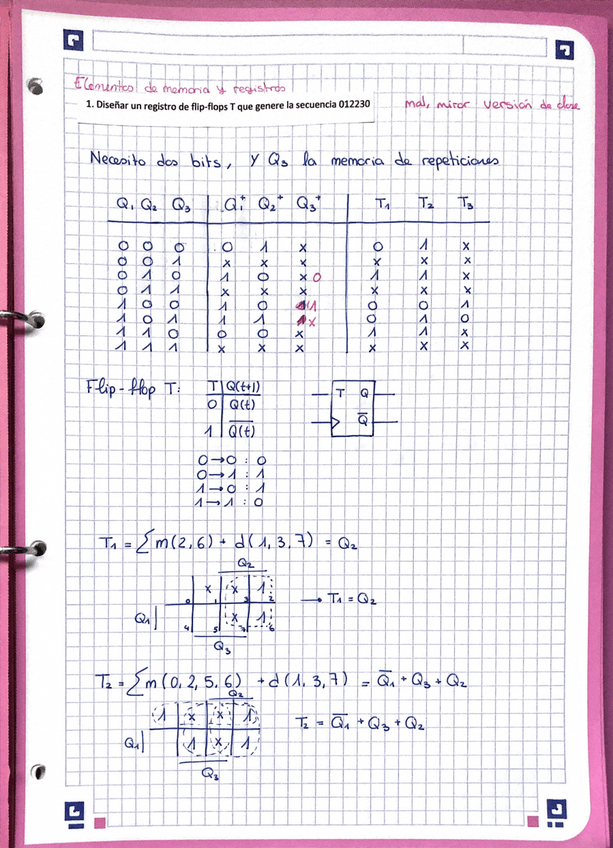 Elementos de memoria y registros
1. Diseñar un registro de flip-flops T que genere la secuencia 012230
mal, mirar versión de clase
Necesito dos bits, y Q3 la memoria de repeticiones
Q1 Q2 Q3 Q1+ Q2+ Q3+ T1 T2 T3
0 0 0 0 1 x 0 1 x
0 0 1 x x x x x x
0 1 0 1 0 x 0 1 1 x
0 1 1 x x x x x x
1 0 0 1 0 1 0 0 1
1 0 1 1 1 1 x 0 1 0
1 1 0 0 0 x 1 1 x
1 1 1 x x x x x x
Flip-flop T: T Q(t+1) T Q
0 Q(t)
1 Q̅(t) Q̅
0→0 : 0
0→1 : 1
1→0 : 1
1→1 : 0
T1 = ∑m(2,6) + d(1,3,7) = Q2
Q2
x x 1
0 1 3 2
→ T1 = Q2
Q1 x 1
4 5 7 6
Q3
T2 = ∑m(0,2,5,6) + d(1,3,7) = Q̅1 + Q3 + Q2
Q2
1 x x 1
T2 = Q̅1 + Q3 + Q2
Q1 1 x 1
Q3